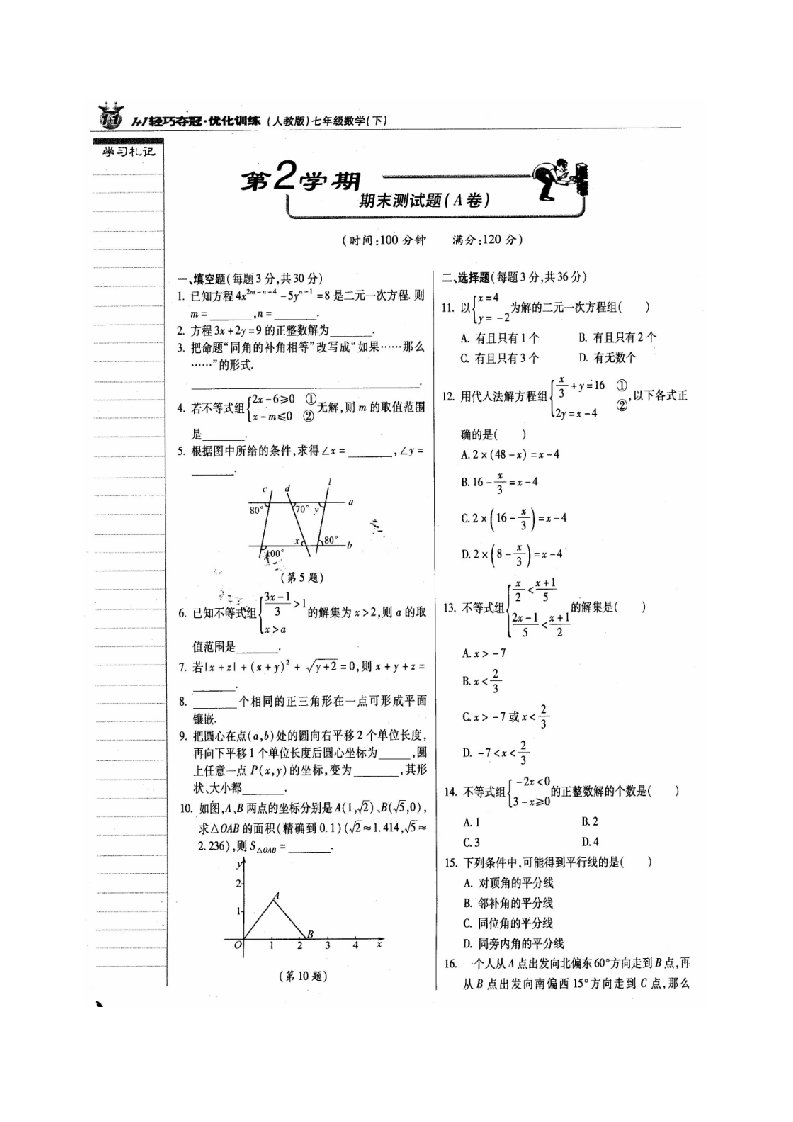 1+1轻巧夺冠·优化训练 (人教版)七年级数学(下)
学习札记
第2学期
期末测试题(A卷)
(时间:100分钟 满分:120分)
一、填空题(每题3分,共30分)
1. 已知方程4x²ᵐ⁻ⁿ⁻⁴-5yⁿ⁻¹=8是二元一次方程.则
m=______,n=______.
2. 方程3x+2y=9的正整数解为______.
3. 把命题“同角的补角相等”改写成“如果……那么
……”的形式.
______.
4. 若不等式组{2x-6≥0 ① x-m≤0 ②无解,则m的取值范围
是______.
5. 根据图中所给的条件,求得∠x=______,∠y=
______.
c d l
80° 70° y a
x 80° b
100°
(第5题)
6. 已知不等式组{(3x-1)/3>1 x>a的解集为x>2,则a的取
值范围是______.
7. 若|x+z|+(x+y)²+√(y+2)=0,则x+y+z=
______.
8. ______个相同的正三角形在一点可形成平面
镶嵌.
9. 把圆心在点(a,b)处的圆向右平移2个单位长度,
再向下平移1个单位长度后圆心坐标为______,圆
上任意一点P(x,y)的坐标,变为______,其形
状、大小都______.
10. 如图,A、B两点的坐标分别是A(1,√2)、B(√5,0),
求△OAB的面积(精确到0.1)(√2≈1.414,√5≈
2.236),则S△OAB=______.
y
2
A
1
B
O 1 2 3 4 x
(第10题)
二、选择题(每题3分,共36分)
11. 以{x=4 y=-2为解的二元一次方程组( )
A. 有且只有1个 B. 有且只有2个
C. 有且只有3个 D. 有无数个
12. 用代入法解方程组{x/3+y=16 ① 2y=x-4 ②,以下各式正
确的是( )
A. 2×(48-x)=x-4
B. 16-x/3=x-4
C. 2×(16-x/3)=x-4
D. 2×(8-x/3)=x-4
13. 不等式组{x/2<(x+1)/5 (2x-1)/5<(x+1)/2的解集是( )
A. x>-7
B. x<2/3
C. x>-7或x<2/3
D. -7<x<2/3
14. 不等式组{-2x<0 3-x≥0的正整数解的个数是( )
A. 1 B. 2
C. 3 D. 4
15. 下列条件中,可能得到平行线的是( )
A. 对顶角的平分线
B. 邻补角的平分线
C. 同位角的平分线
D. 同旁内角的平分线
16. 一个人从A点出发向北偏东60°方向走到B点,再
从B点出发向南偏西15°方向走到C点,那么